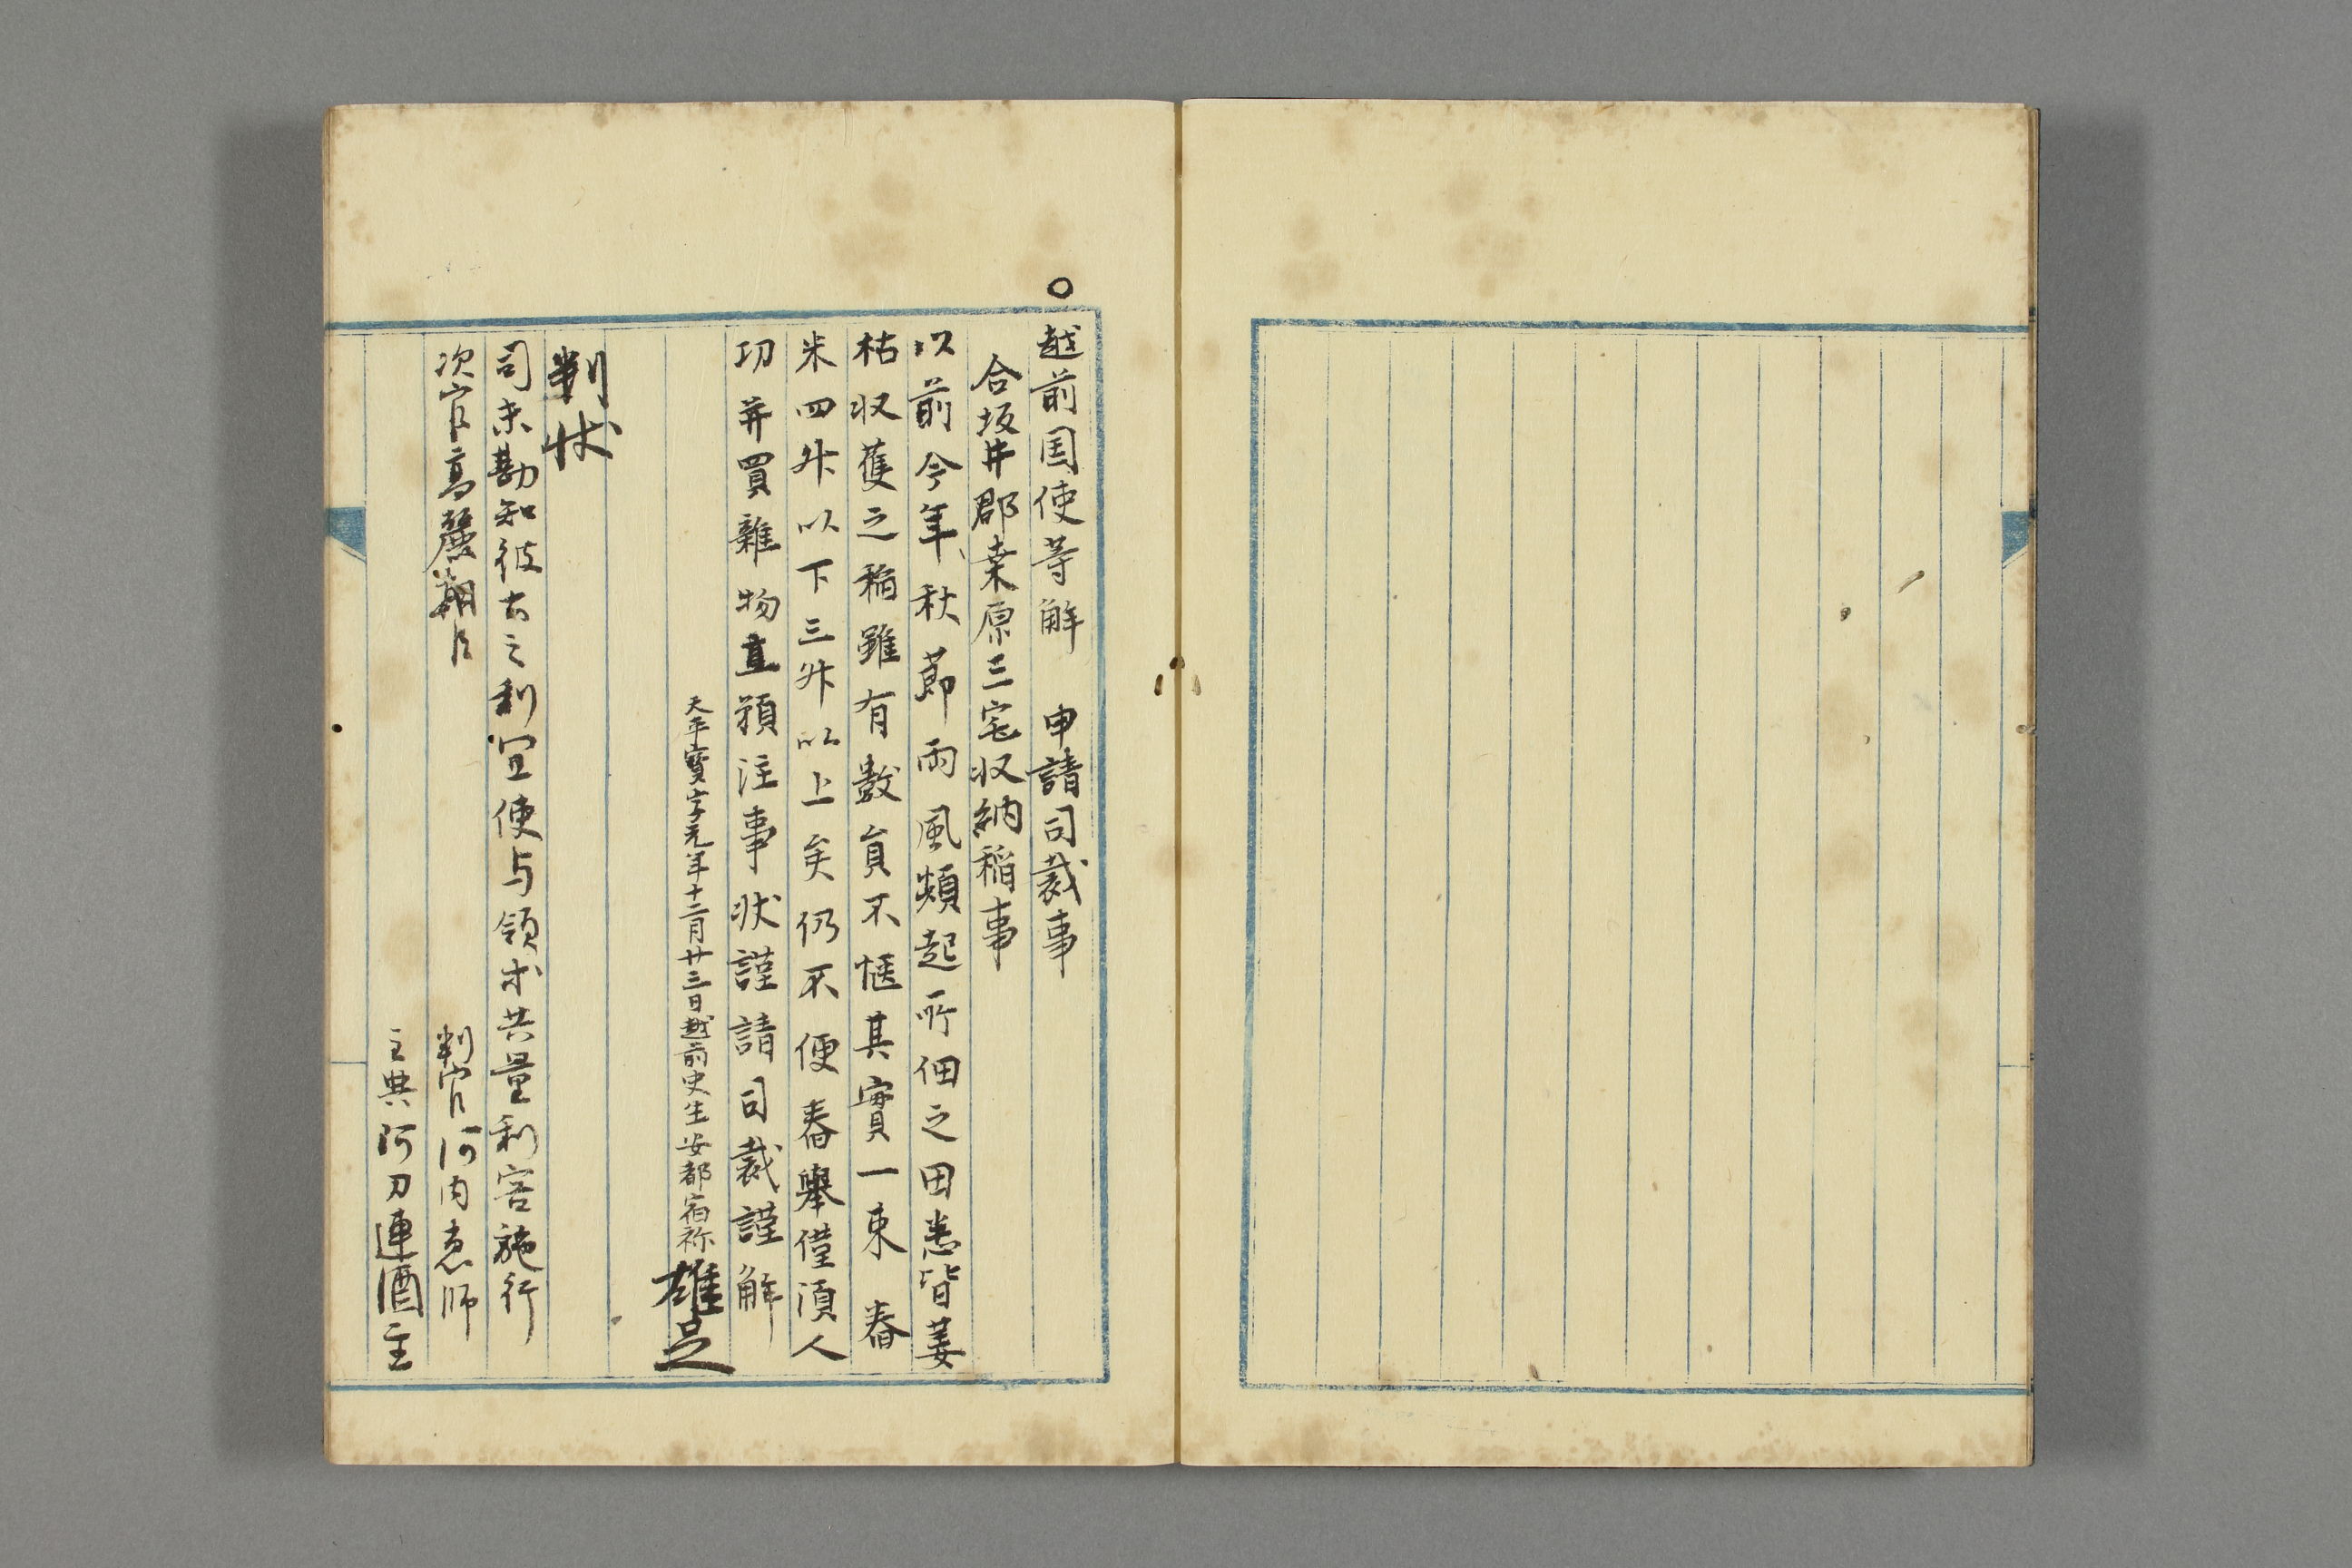 ○
越前国使等解　申請司裁事
合坂井郡桒原三宅収納稲事
以前今年秋莭雨風頻起所佃之田悉皆萎
枯収獲之稲雖有數負不愜其實一束　舂
米四舛以下三舛以上矣仍不便舂舉僅湏人
功并買雜物直預注事状謹請司裁謹解
天平寶字元年十二月廿三日越前史生安都宿祢雄足
判状
司未勘知彼土之利宜使与領等共量利害施行
次官高麗朝臣
判官河内恵師
主典阿刀連酒主